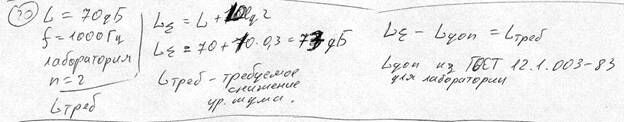 20
L = 70дБ
f = 1000Гц
лаборатория
n = 2
Lтреб
LΣ = L + 10lg2
LΣ = 70 + 10·0,3 = 73дБ
Lтреб – требуемое
снижение
ур. шума.
LΣ – Lдоп = Lтреб
Lдоп из ГОСТ 12.1.003-83
для лаборатории